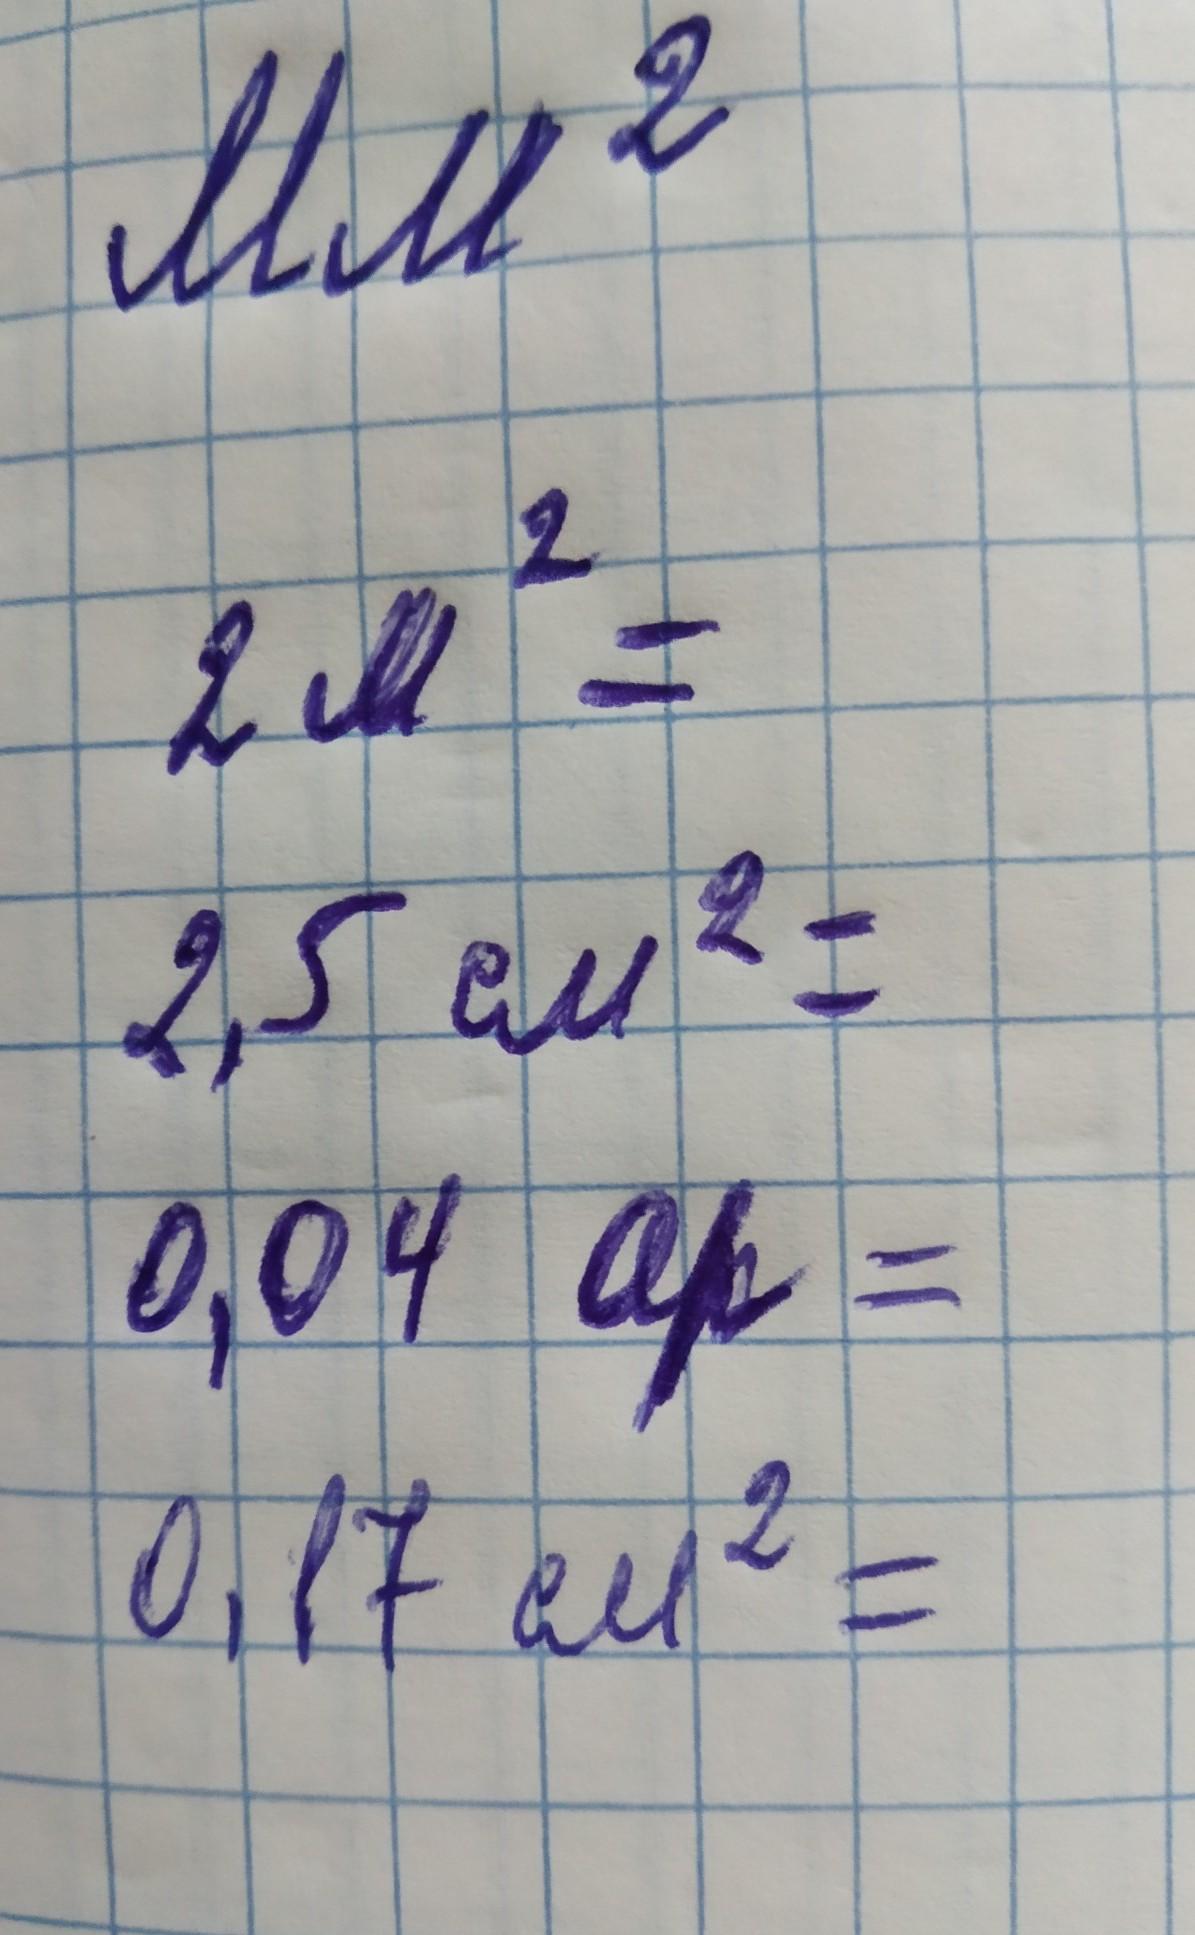 мм²
2 м² =
2,5 см² =
0,04 ар =
0,17 см² =